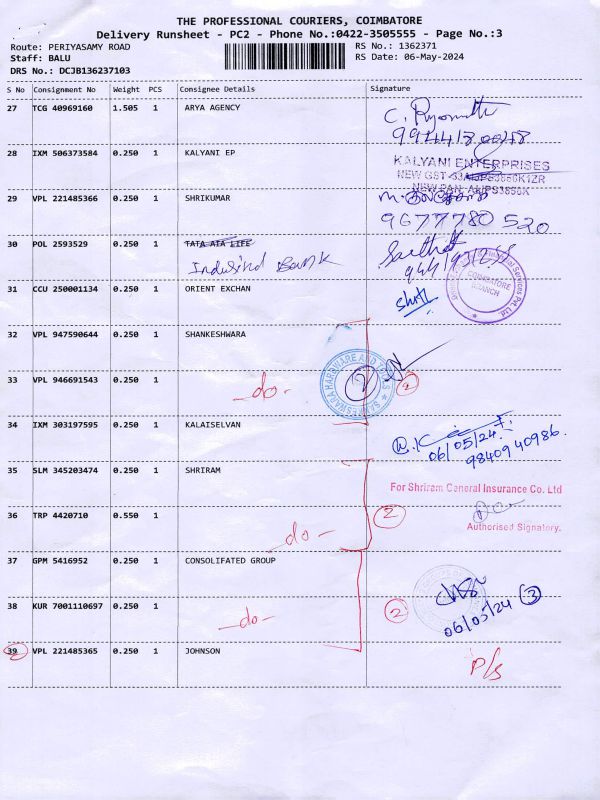 THE PROFESSIONAL COURIERS, COIMBATORE
Delivery Runsheet - PC2 - Phone No.:0422-3505555 - Page No.:3
Route: PERIYASAMY ROAD
RS No.: 1362371
Staff: BALU
RS Date: 06-May-2024
DRS No.: DCJB136237103
S No Consignment No Weight PCS Consignee Details Signature
27 TCG 40969160 1.505 1 ARYA AGENCY
28 IXM 506373584 0.250 1 KALYANI EP
KALYANI ENTERPRISES
29 VPL 221485366 0.250 1 SHRIKUMAR
9677780520
30 POL 2593529 0.250 1 TATA AIA LIFE
Indusind Bank
31 CCU 250001134 0.250 1 ORIENT EXCHAN
COIMBATORE
BRANCH
32 VPL 947590644 0.250 1 SHANKESHWARA
33 VPL 946691543 0.250 1
-do-
2
34 IXM 303197595 0.250 1 KALAISELVAN
06/05/24
9840940986.
35 SLM 345203474 0.250 1 SHRIRAM
For Shriram General Insurance Co. Ltd
36 TRP 4420710 0.550 1
-do-
2
Authorised Signatory.
37 GPM 5416952 0.250 1 CONSOLIFATED GROUP
38 KUR 7001110697 0.250 1
-do-
2
06/05/24 3
39 VPL 221485365 0.250 1 JOHNSON
P/S